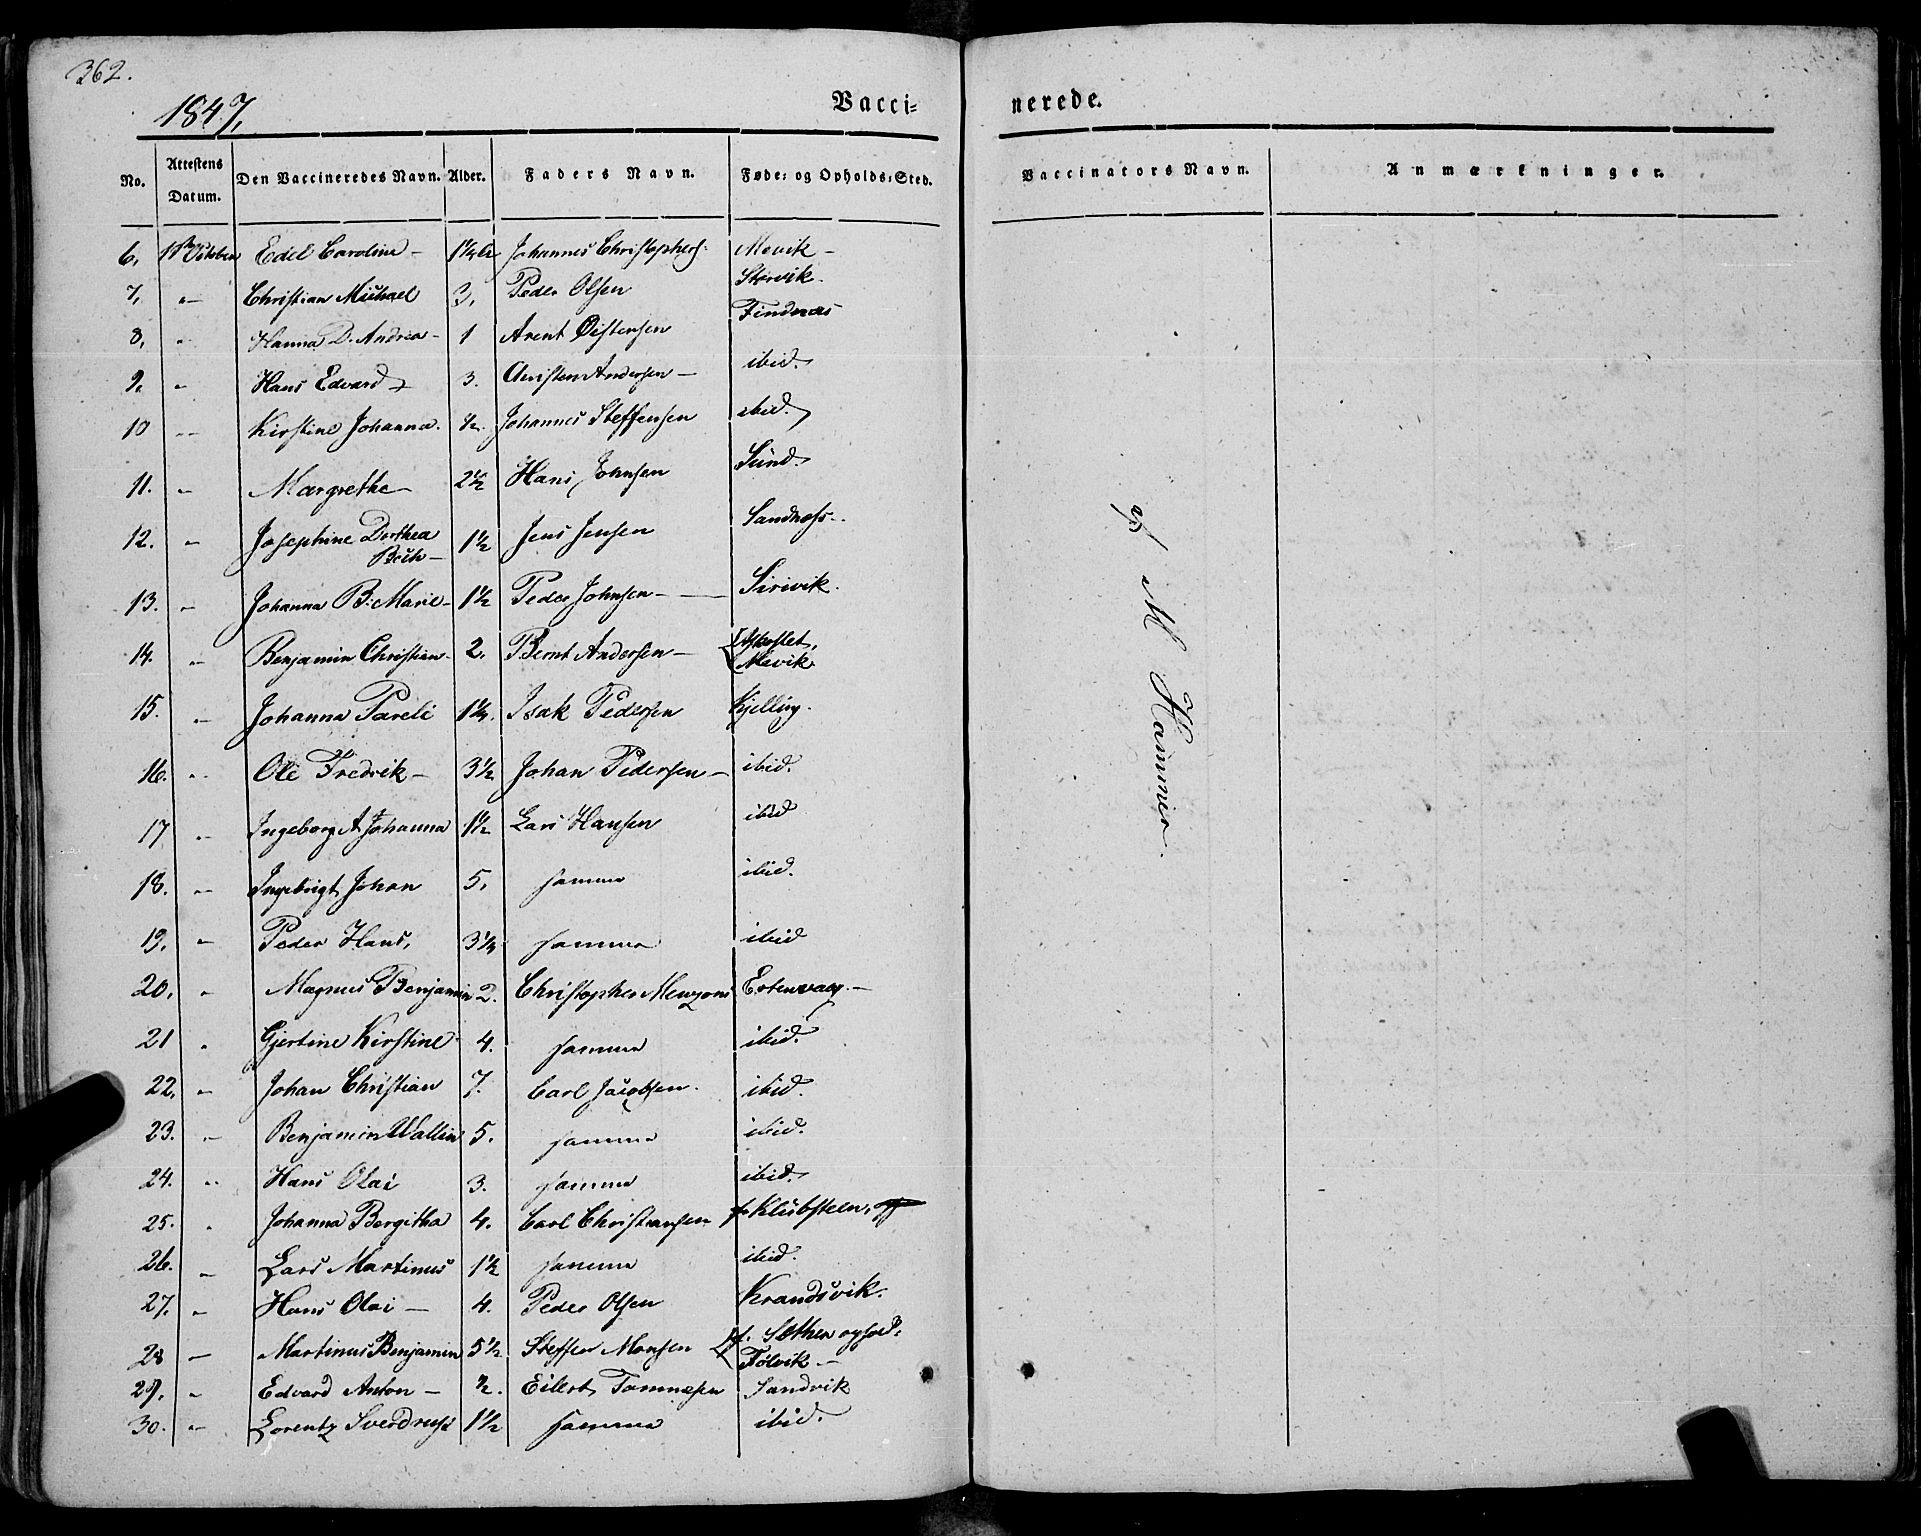 362.
1847, Vacci= nerede.
No. Attestens Datum. Den Vaccineredes Navn. Alder. Faders Navn. Føde= og Opholds=Sted. Vaccinators Navn. Anmærkninger.
6, Edel Caroline – Johannes Christophers: Mevik –
7, " Christian Michael 3, Peder Olsen Storvik.
8, " Hanna D. Andrea – 1 Arent Øistensen Findnæs
9, " Hans Edvard 3. Christen Andersen – ibid.
10 " Kirstine Johanna. ½. Johannes Steffensen ibid.
11. " Margrethe – 2½ Hans Johnsen Sund.
12. " Josephine Dorthea 1½ Jens Jensen Sandnæs..
Bech –
13. " Johanna B: Marie – 1½ Peder Johnsen – Sirivik.
14. " Benjamin Christian – 2. Bernt Andersen –
Mevik
15. " Johanna Pareli 1¼. Isak Pedersen Kjelling.
16. " Ole Fredrik – 3½ Johan Pedersen – ibid.
17 " Ingeborg A Johanna 1½ Lars Hansen ibid
18. " Ingebrigt Johan 5, samme ibid.
19. " Peder Hans, 3¼ samme ibid
20, " Magnus Benjamin 2. Christopher Menzoni Estenvaag. –
21 " Gjertine Kirstine 4. samme ibid.
22, " Johan Christian 7. Carl Jacobsen. ibid.
23. " Benjamin Wallin 5. samme ibid.
24. " Hans Olai 3. samme ibid.
25. " Johanna Bergitha 4. Carl Christiansen f. Klubsteen,
26. " Lars Martinus 1½ samme ibid.
27. " Hans Olai – 4. Peder Olsen Krandsvik.
28 " Martinus Benjamin 5½ Steffen Monsen f. Sæther opfød:
Tølvik –
29. " Edvard Anton – ½. Eilert Tommesen Sandvik
30. " Lorentz Sverdrup 1½ samme ibid.
af M Hammer.